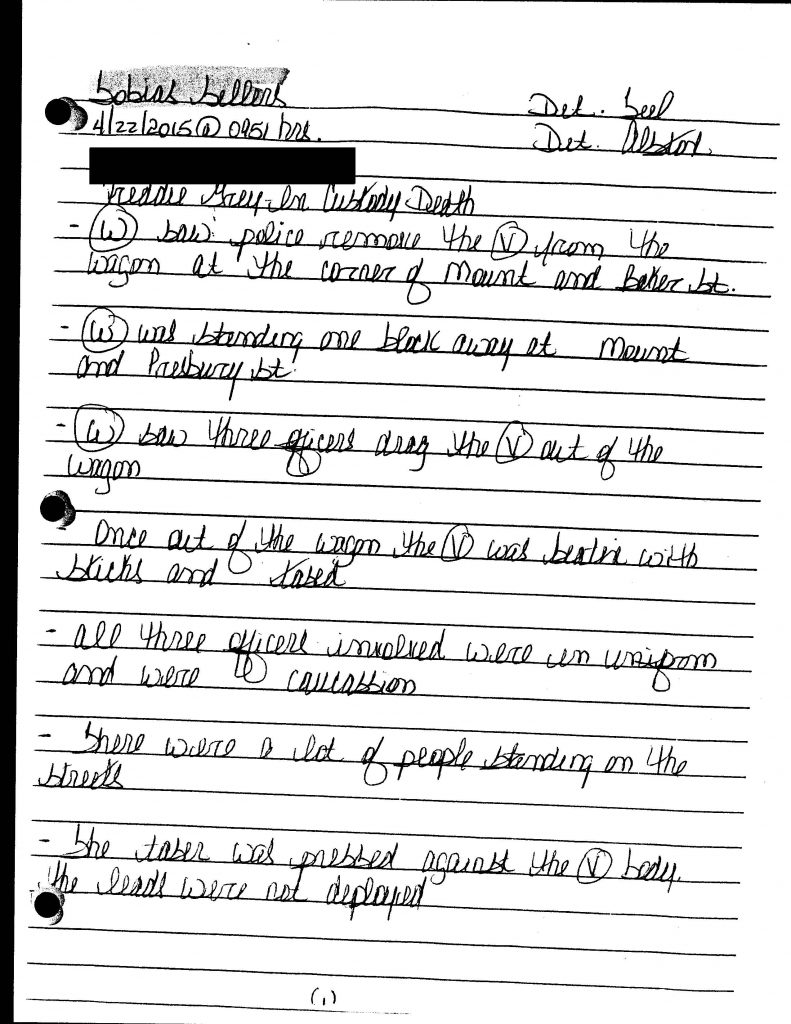 Tobias Sellers
Det. Teel
4/22/2015 @ 0951 hrs.
Det. Alston
Freddie Grey-In Custody Death
- (W) saw police remove the (V) from the
wagon at the corner of Mount and Baker St.
- (W) was standing one block away at Mount
and Presbury St.
- (W) saw three officers drag the (V) out of the
wagon
- Once out of the wagon the (V) was beatin with
sticks and tased
- all three officers involved were in uniform
and were caucassion
- There were a lot of people standing on the
streets
- The taser was pressed against the (V) body.
the leads were not deployed
(1)